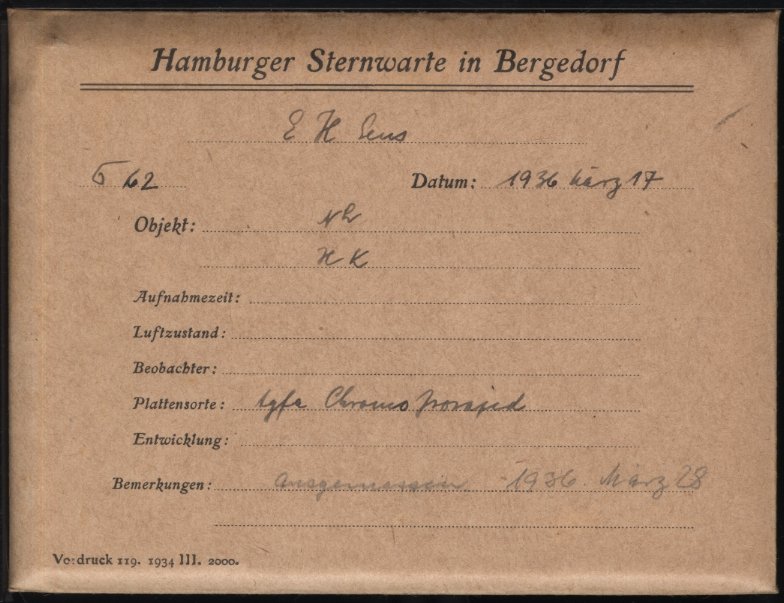 Hamburger Sternwarte in Bergedorf
E H
62 Datum: 1936 März 17
Objekt:
H K
Aufnahmezeit:
Luftzustand:
Beobachter:
Plattensorte: Agfa Chromo Isorapid
Entwicklung:
Bemerkungen: ausgemessen 1936 März 28
Vordruck 119. 1934 III. 2000.